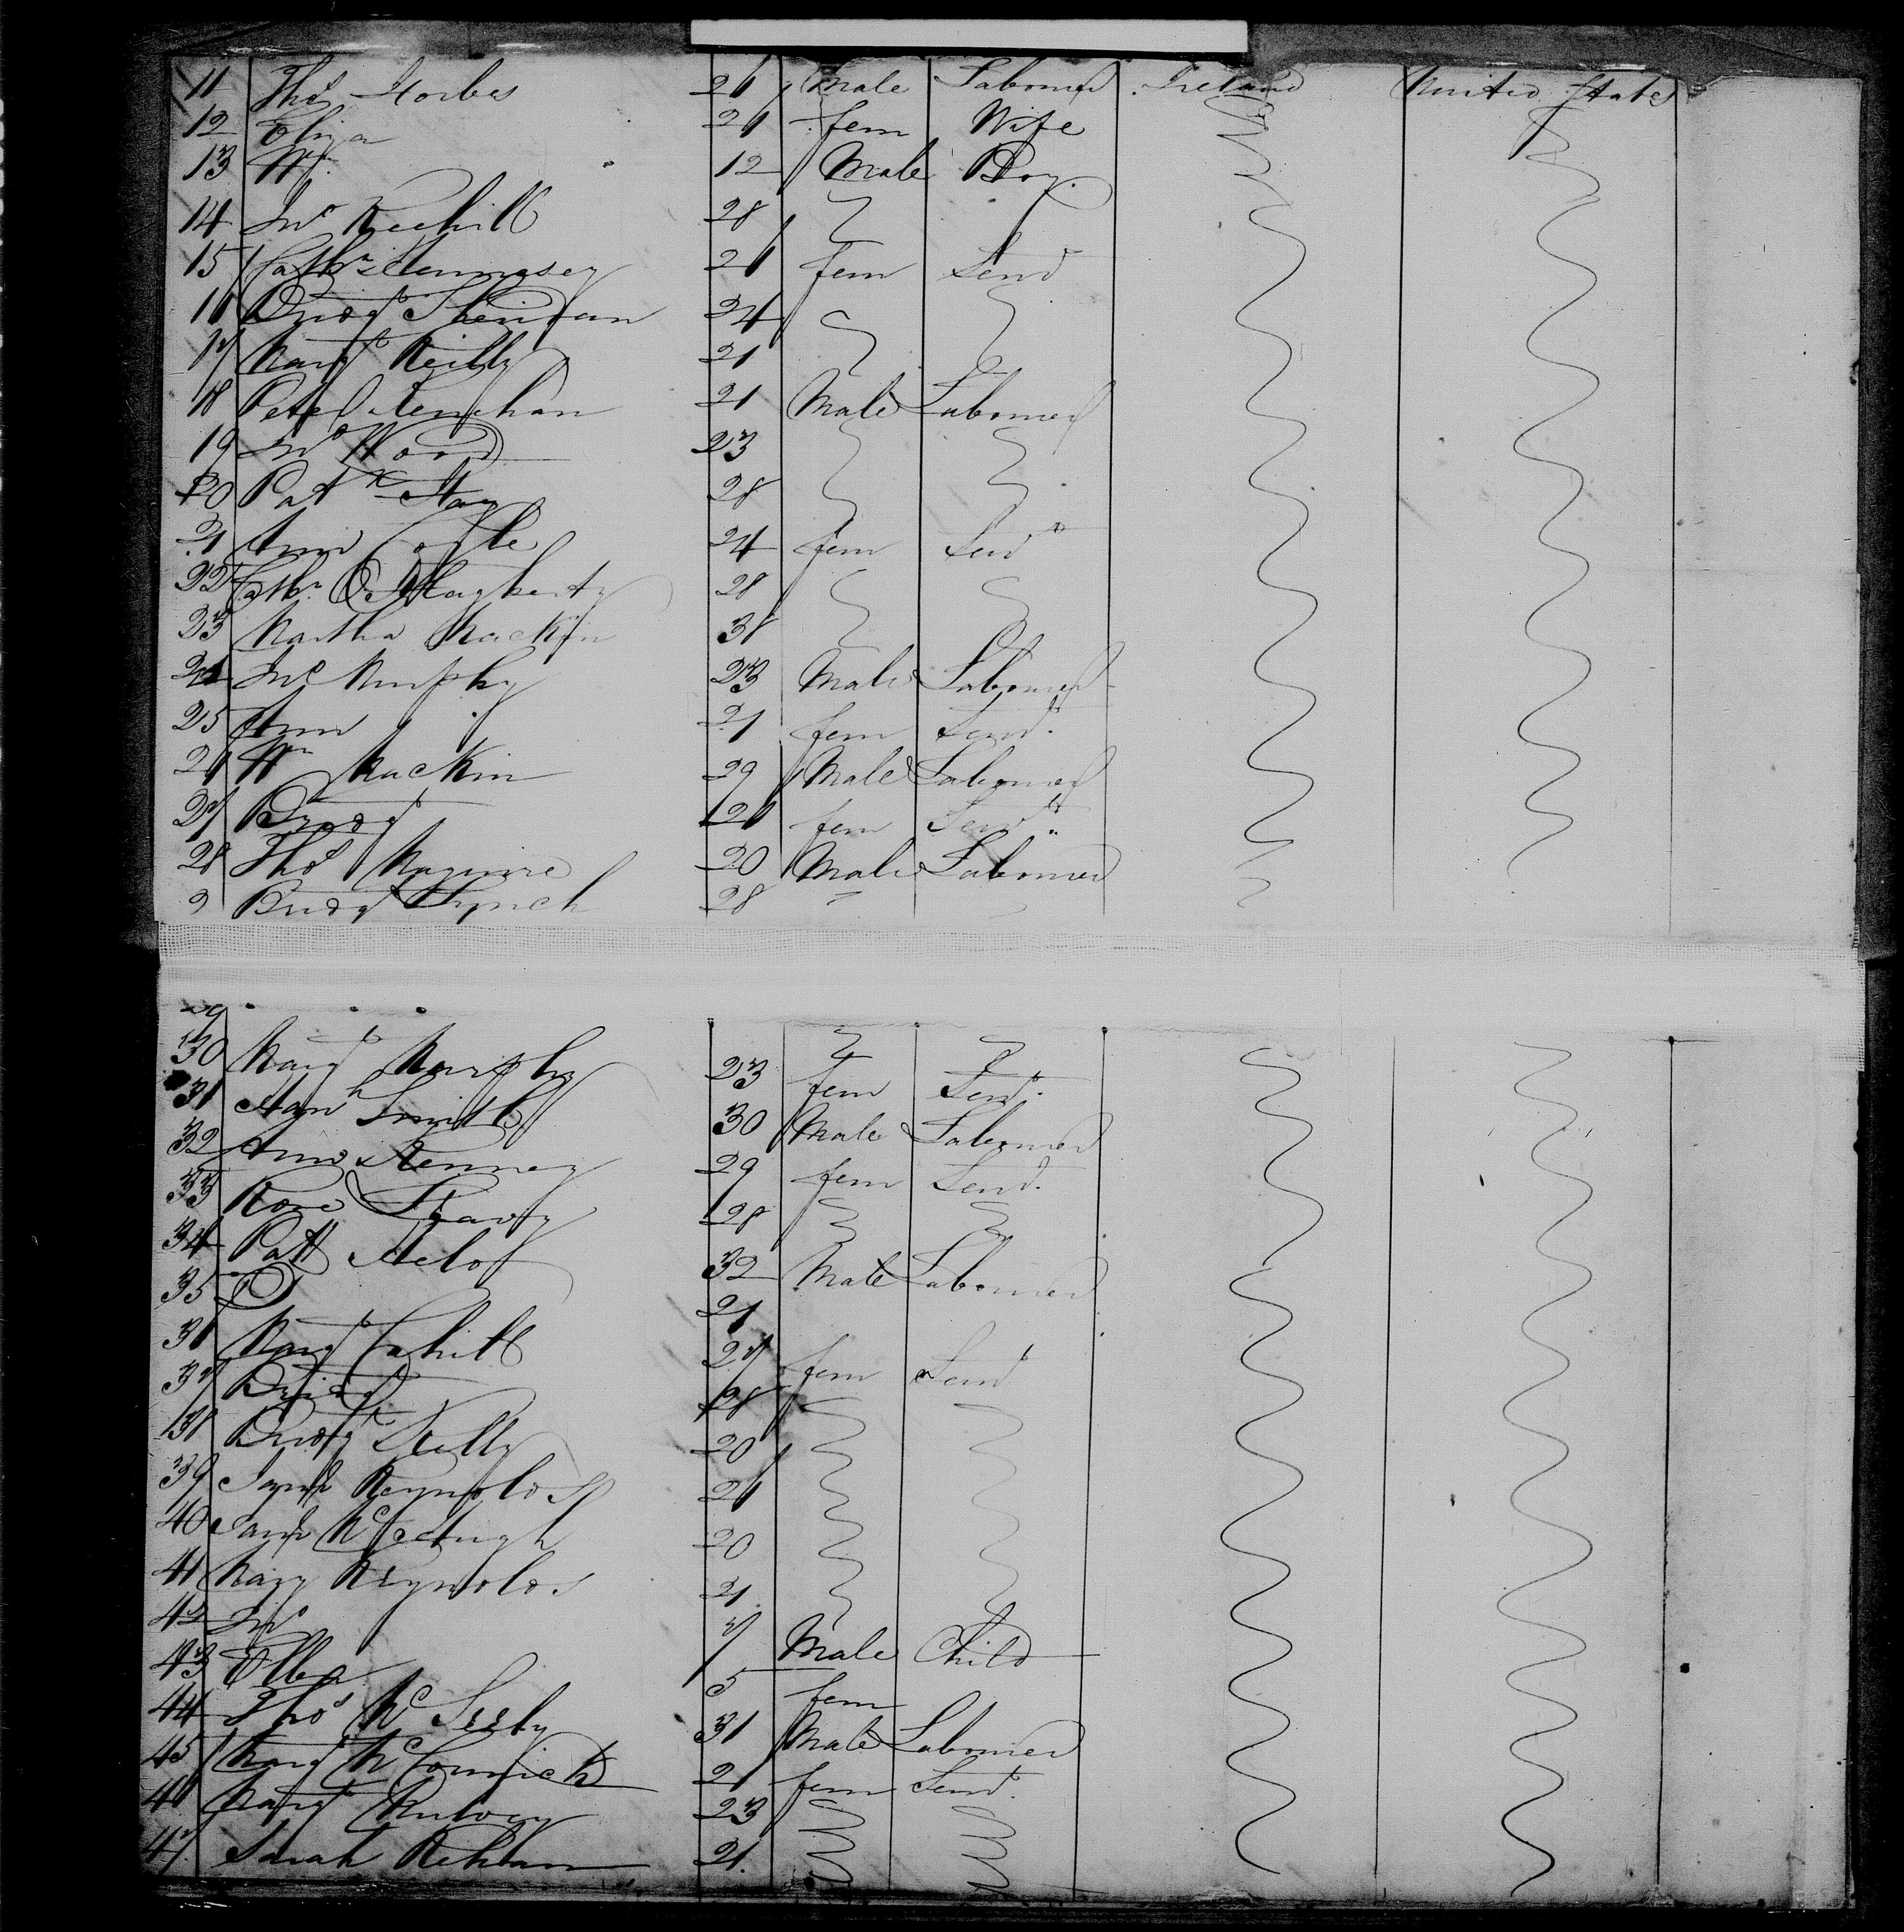 11 Thos Forbes 26 Male Labourer Ireland United States
12 Eliza 26 fem Wife
13 Wm 12 Male Boy
14 Jno Keehill 28
15 Cathn Hennessey 26 fem Servt
16 Bridgt Sheridan 24
17 Margt Reilly 21
18 Peter Lenehan 21 Male Labourer
19 Jno Wood 23
20 Patk Hay 28
21 Ann Coyle 24 fem Servt
22 Cathn O'Flagherty 28
23 Martha Mackin
24 Jno Murphy 23 Male Labourer
25 Ann 21 fem Servt
26 Wm Mackin 29 Male Labourer
27 Bridgt 26 fem Servt
28 Thos Maguire 20 Male Labourer
9 Bridgt Lynch 28
29
30 Margt Murphy 23 fem Servt
31 Smith 30 Male Labourer
32 Ann Kenney 29 fem Servt
33 Rose 28
34 Patt 32 Male Labourer
35 21
36 Margt Cahill 27 fem Servt
37 Bridgt 28
38 Bridgt Kelly 20
39 Reynolds 26
40 20
41 Mary Reynolds 21
42 Jno 7 Male Child
43 5 fem
44 Thos Mc 31 Male Labourer
45 Margt McCormick 21 fem Servt
46 Margt 23
47 Sarah 21